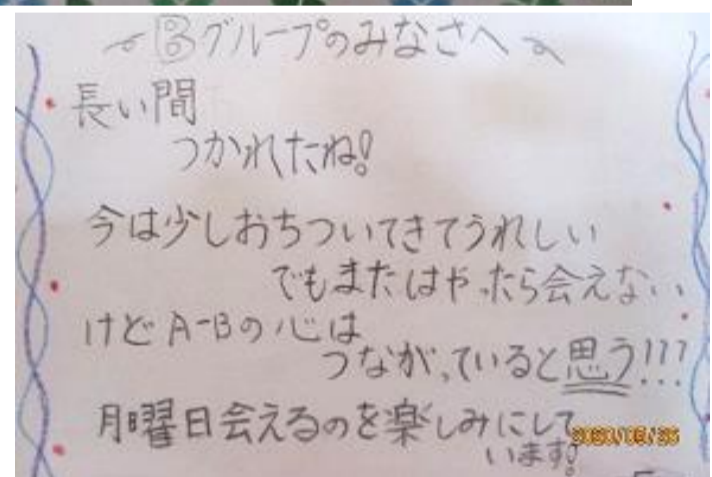 Ⓑグループのみなさへ
長い間
つかれたね!
今は少しおちついてきてうれしい
でもまたはやったら会えない
けどA-Bの心は
つながっていると思う!!!
月曜日会えるのを楽しみにして
います!